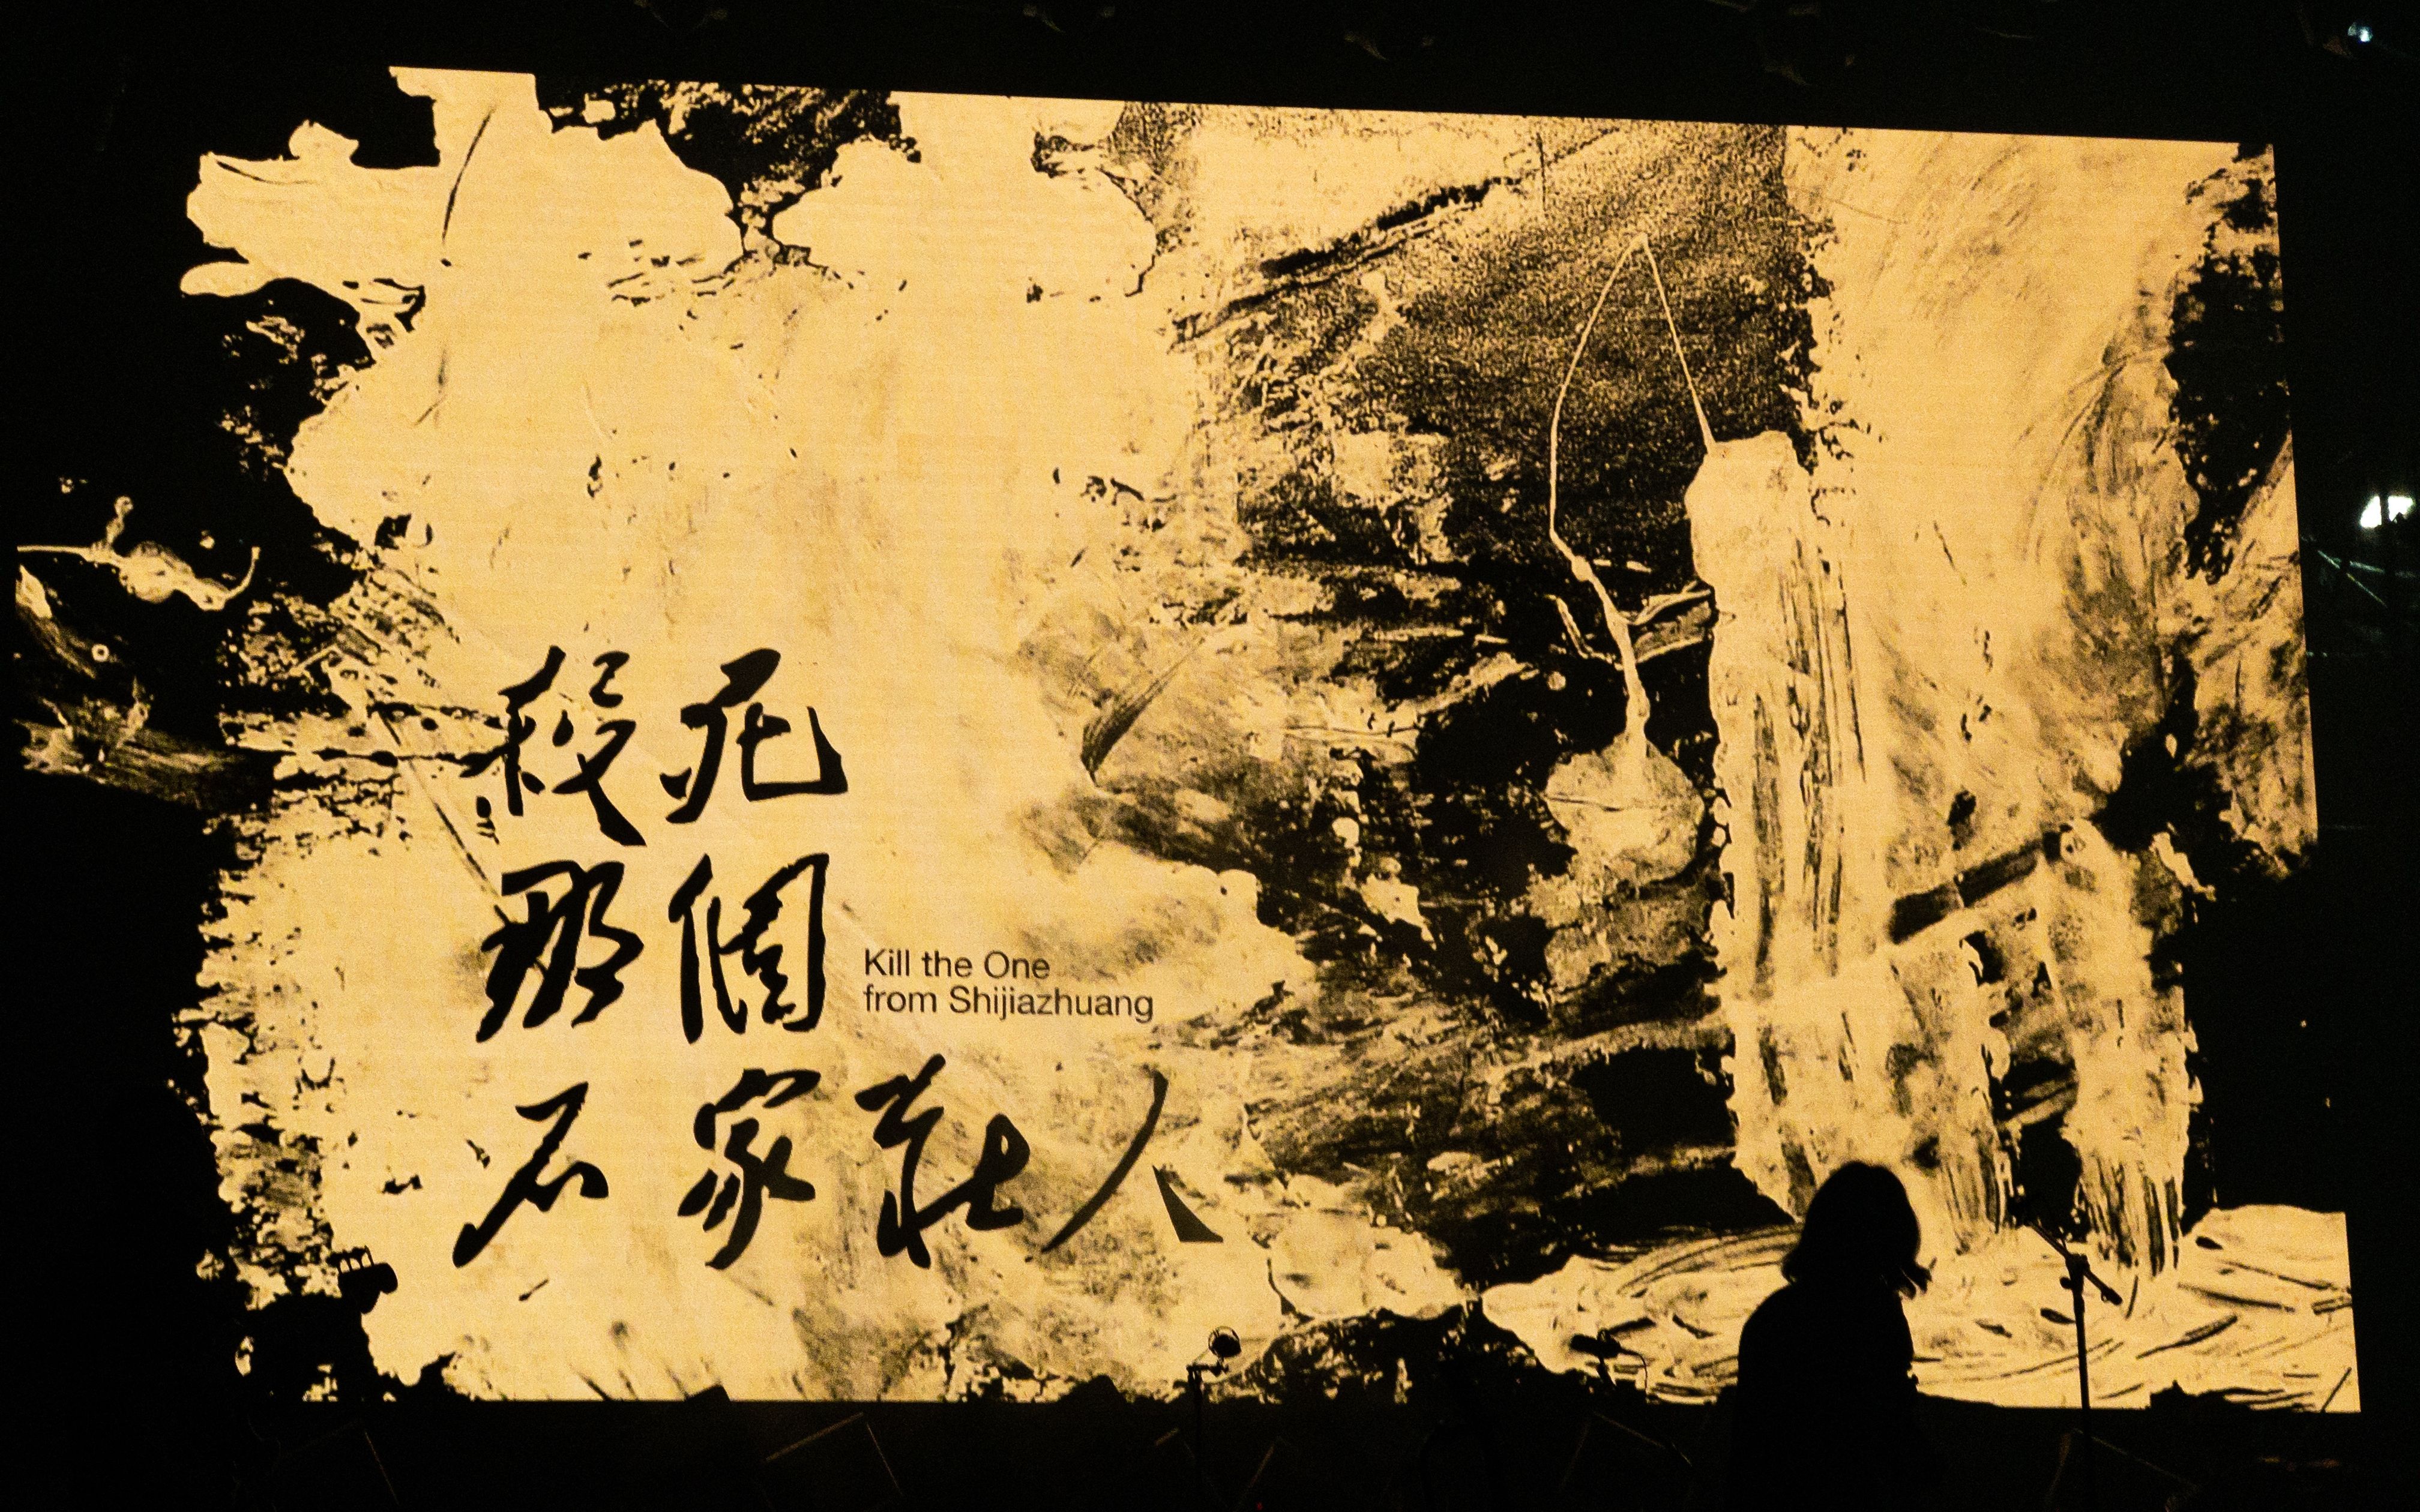 殺死
那個
Kill the One
from Shijiazhuang
石家莊人